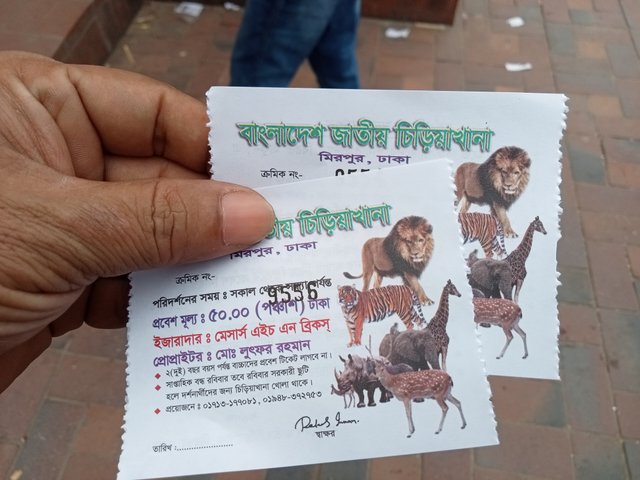 বাংলাদেশ জাতীয় চিড়িয়াখানা
মিরপুর, ঢাকা
ক্রমিক নং-
জাতীয় চিড়িয়াখানা
মিরপুর, ঢাকা
ক্রমিক নং-
9556
পরিদর্শনের সময় ঃ সকাল
প্রবেশ মূল্য ঃ ৫০.০০ (পঞ্চাশ) টাকা
ইজারাদার ঃ মেসার্স এইচ এন ব্রিকস্
প্রোপ্রাইটর ঃ মোঃ লুৎফর রহমান
২(দুই) বছর বয়স পর্যন্ত বাচ্চাদের প্রবেশ টিকেট লাগবে না।
সাপ্তাহিক বন্ধ রবিবার তবে রবিবার সরকারী ছুটি
হলে দর্শনার্থীদের জন্য চিড়িয়াখানা খোলা থাকে।
প্রয়োজনে : ০১৭১৩-১৭৭০৮১, ০১৯৪৮-৩৭২৭৫৩
স্বাক্ষর
তারিখ :